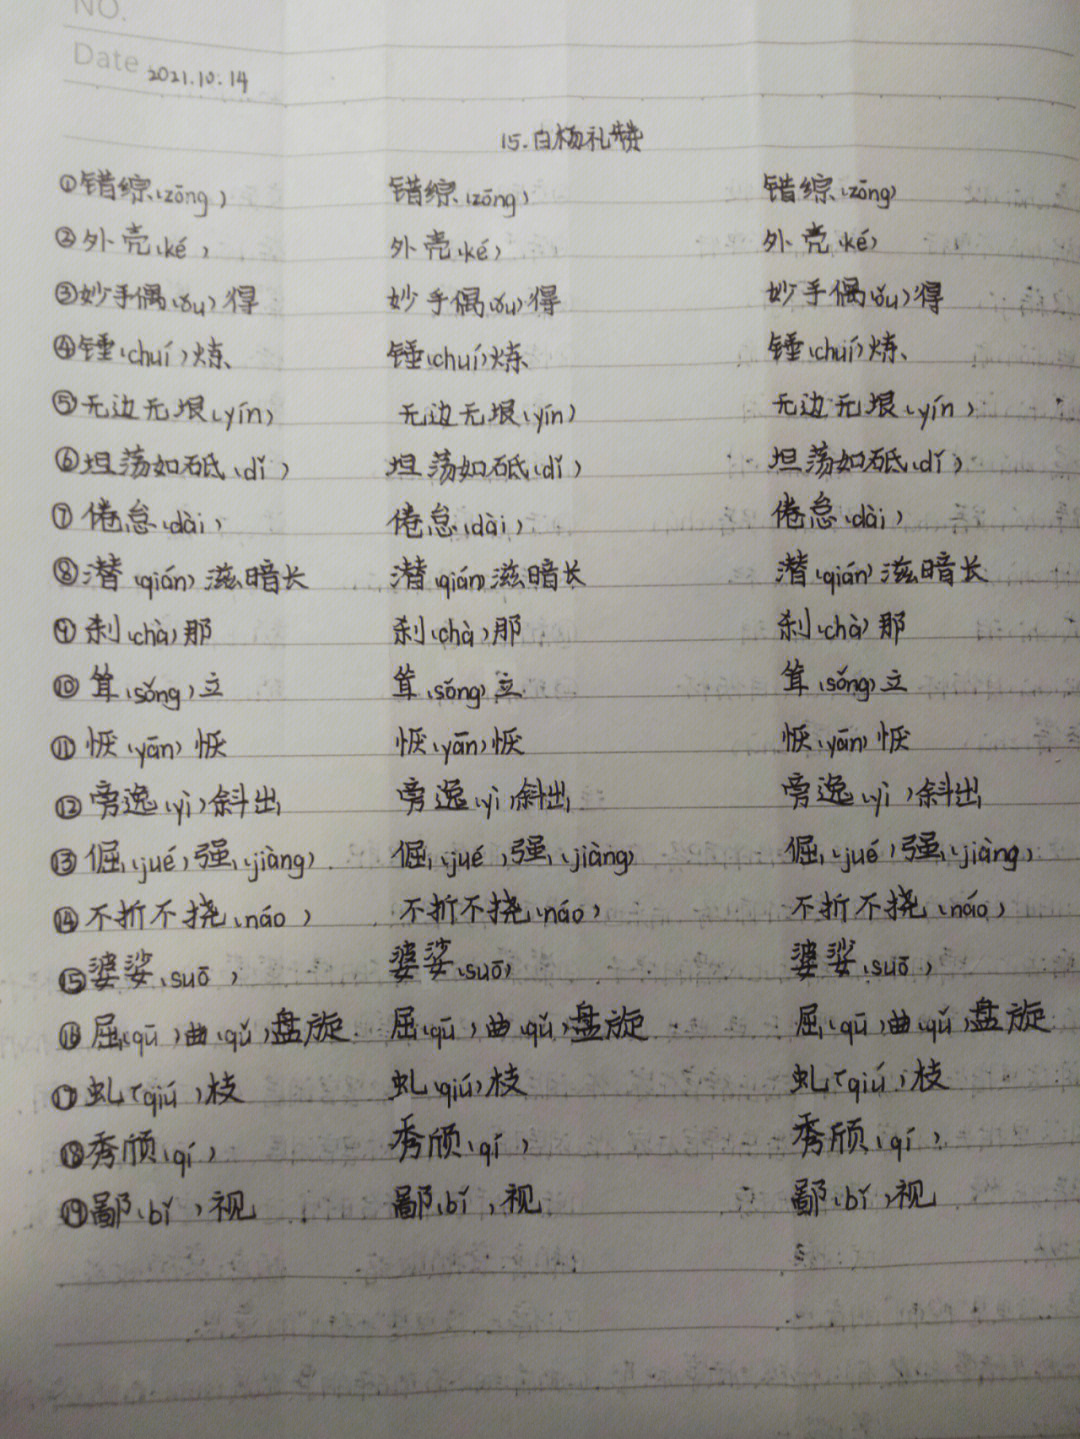 NO.
Date 2021.10.14
15.白杨礼赞
①错综(zōng) 错综(zōng) 错综(zōng)
②外壳(ké) 外壳(ké) 外壳(ké)
③妙手偶(ǒu)得 妙手偶(ǒu)得 妙手偶(ǒu)得
④锤(chuí)炼、 锤(chuí)炼、 锤(chuí)炼、
⑤无边无垠(yín) 无边无垠(yín) 无边无垠(yín)
⑥坦荡如砥(dǐ) 坦荡如砥(dǐ) 坦荡如砥(dǐ)
⑦倦怠(dài) 倦怠(dài) 倦怠(dài)
⑧潜(qián)滋暗长 潜(qián)滋暗长 潜(qián)滋暗长
⑨刹(chà)那 刹(chà)那 刹(chà)那
⑩耸(sǒng)立 耸(sǒng)立 耸(sǒng)立
⑪恹(yān)恹 恹(yān)恹 恹(yān)恹
⑫旁逸(yì)斜出 旁逸(yì)斜出 旁逸(yì)斜出
⑬倔(jué)强(jiàng) 倔(jué)强(jiàng) 倔(jué)强(jiàng)
⑭不折不挠(náo) 不折不挠(náo) 不折不挠(náo)
⑮婆娑(suō) 婆娑(suō) 婆娑(suō)
⑯屈(qū)曲(qǔ)盘旋 屈(qū)曲(qǔ)盘旋 屈(qū)曲(qǔ)盘旋
⑰虬(qiú)枝 虬(qiú)枝 虬(qiú)枝
⑱秀颀(qí) 秀颀(qí) 秀颀(qí)
⑲鄙(bǐ)视 鄙(bǐ)视 鄙(bǐ)视